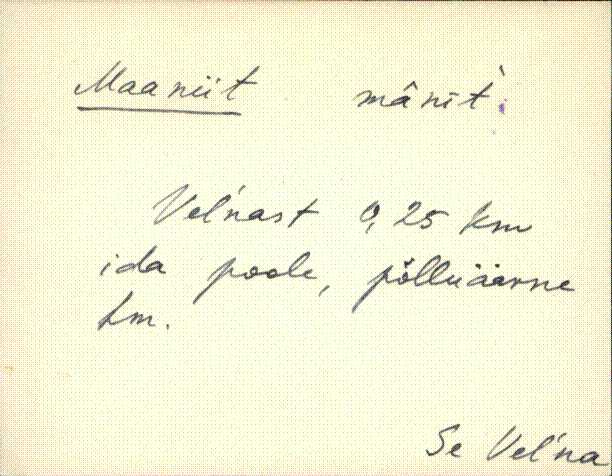 Maaniit mânit̀
Vel'nast 0,25 km
ida poole, põlluäärne
hm.
Se Vel'na